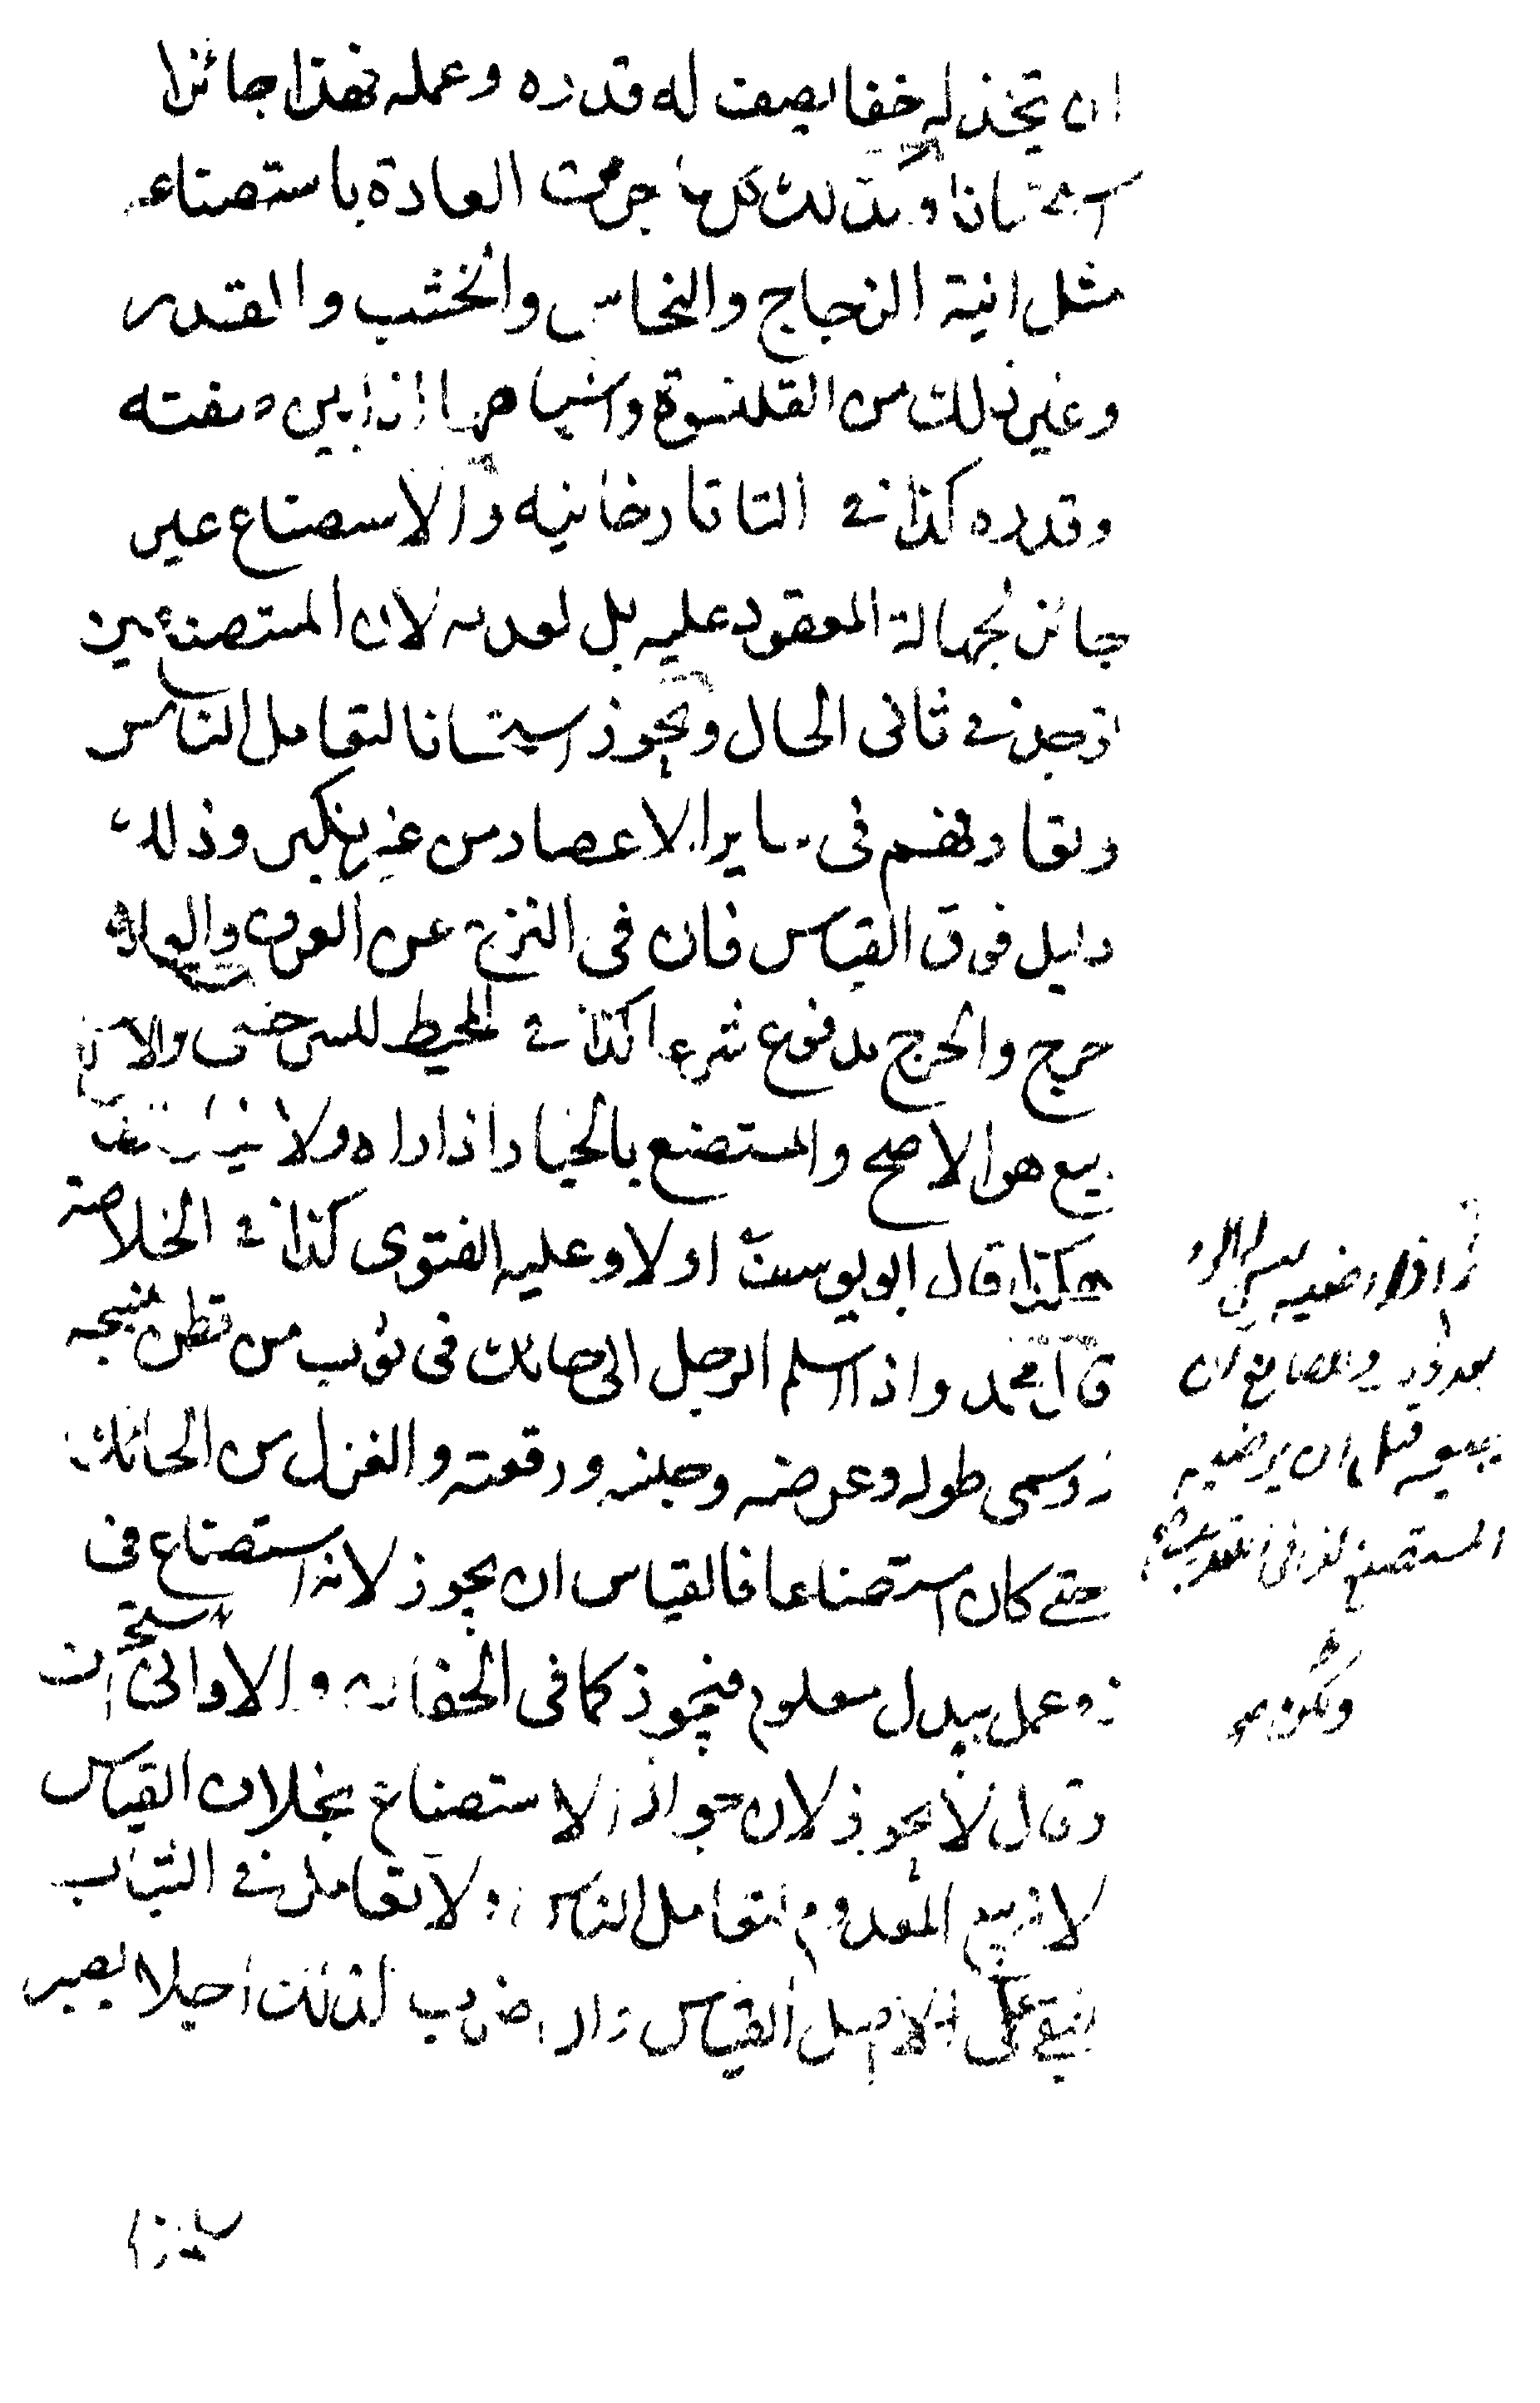 ان تخذ له خفا يصف له قدره وعمله فهذا جائزا
استحسانا وكذلك كل ما جرت العادة باستصناعه
مثل انية الزجاج والنحاس والخشب والقدر
وغير ذلك من القلنسوة واشباهها اذا بين صفته
وقدره كذا في التاتارخانيه والاستصناع غير
جائز لجهالة المعقود عليه بل لعدمه لان المستصنع عين
توجد في ثاني الحال ويجوز استحسانا لتعامل الناس
وتعارفهم في ساير الاعصار من غير نكير وذلك
دليل فوق القياس فان في النزع عن العرف والعادة
حرج والحرج مدفوع شرعا كذا في المحيط للسرخسي والا
بيع هو الاصح والمستصنع بالخيار اذا راه ولا خيار
هكذا قال ابو يوسف اولا وعليه الفتوى كذا في الخلاصة
قال محمد واذا اسلم الرجل الى حائك في ثوب من قطن ينسجه
وسمى طوله وعرضه وجنسه ورقعته والغزل من الحائك
حتى كان استصناعا فالقياس ان يجوز لانه استصناع في
وعمل ببدل معلوم فيجوز كما في الخفاف والاواني استحسن
وقال لا يجوز لان جواز الاستصناع بخلاف القياس
لانه بيع المعدوم لتعامل الناس ولا تعامل في الثياب
فبقي على الاصل القياس وان ضرب لذلك اجلا يصير
اذا رضيه ليس له الرد
بعد ذلك وللصانع ان
يبيعه قبل ان يرضيه
المستصنع